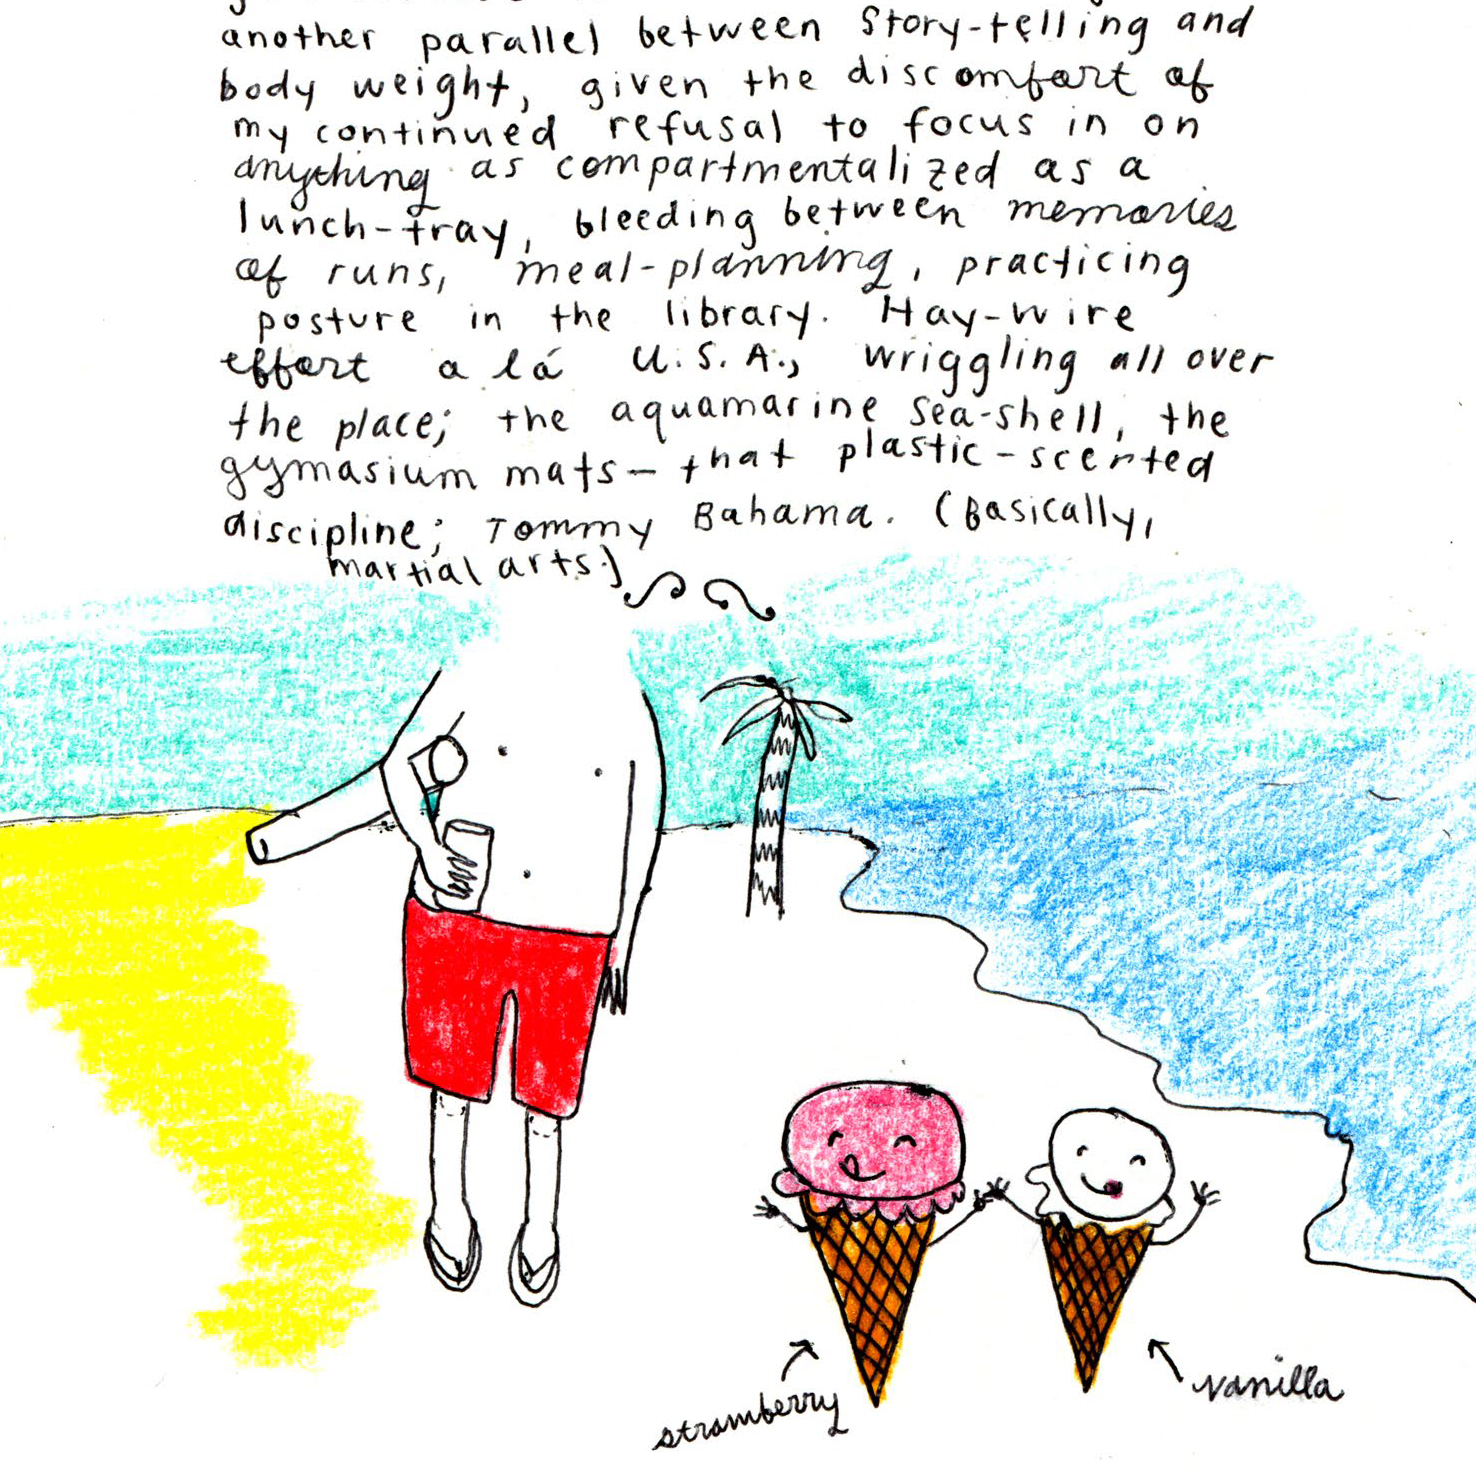 another parallel between Story-telling and
body weight, given the discomfort of
my continued refusal to focus in on
anything as compartmentalized as a
lunch-tray, bleeding between memories
of runs, meal-planning, practicing
posture in the library. Hay-wire
effort a lá U.S.A., wriggling all over
the place; the aquamarine sea-shell, the
gymasium mats— that plastic-scented
discipline; Tommy Bahama. (Basically,
martial arts.)
strawberry
vanilla